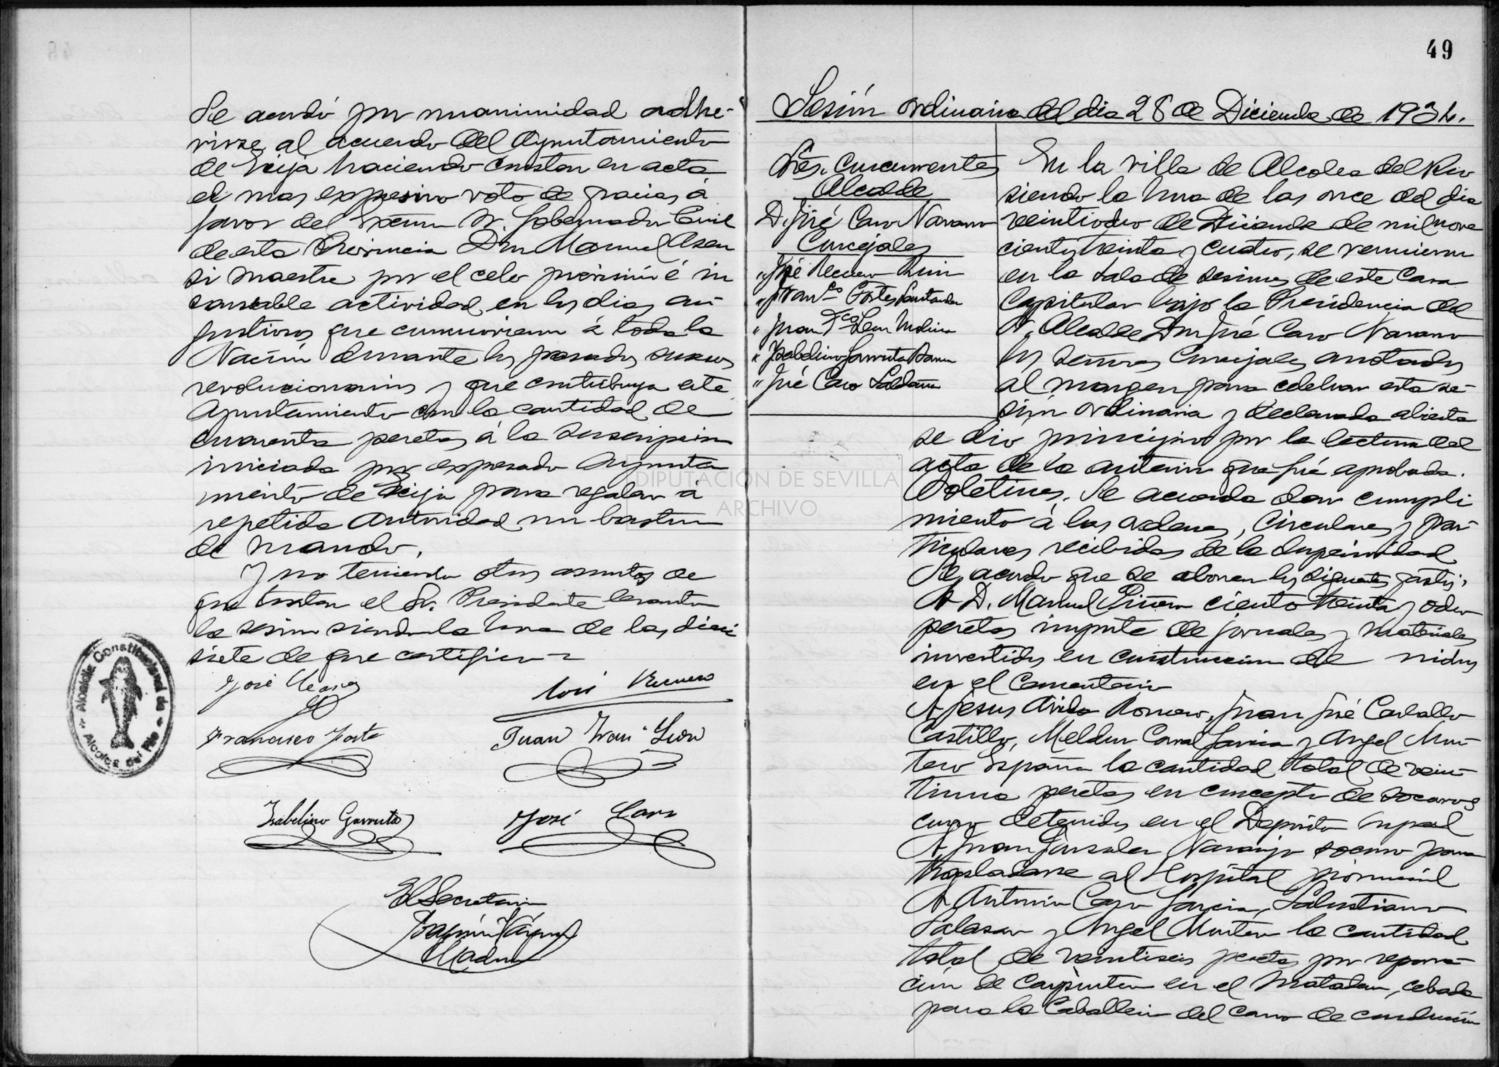 Se acordó por unanimidad adhe-
rirse al acuerdo del Ayuntamiento
de Ecija haciendo constar en acta
el mas expresivo voto de gracias á
favor del Excmo Sr. Gobernador Civil
de esta Provincia Don Manuel Asen
si Maestre por el celo é in
cansable actividad en los dias an
gustiosos que conmovieron á toda la
Nación durante los pasados sucesos
revolucionarios y que contribuya este
Ayuntamiento con la cantidad de
cuarenta pesetas á la suscripcion
iniciada por expresado Ayunta
miento de Ecija para regalar á
repetida Autoridad un baston
de mando.
Y no teniendo otros asuntos de
que tratar el Sr. Presidente levanta
la sesion siendo la hora de las dieci
siete de que certifico =
José
José Recuero
Francisco
Juan Fran León
Isabelino Garruta
José Caro
El Secretario
Joaquín
Alcaldia Constitucional de
Alcolea del Rio
49
Sesión ordinaria del dia 28 de Diciembre de 1934.
Sres. concurrentes
Alcalde
D. José Caro Navarro
Concejales
" José Recuero
" Fran.co Cortes
" Juan Fco Leon Molina
" Isabelino Garruta
" José Caro Saldaña
En la villa de Alcolea del Rio
siendo la hora de las once del dia
veintiocho de Diciembre de mil nove
cientos treinta y cuatro, se reunieron
en la Sala de sesiones de esta Casa
Capitular bajo la Presidencia del
Sr. Alcalde Don José Caro Navarro
los señores Concejales anotados
al margen para celebrar esta se-
sión ordinaria y declarada abierta
se dio principio por la lectura del
acta de la anterior que fué aprobada.
Boletines. Se acuerda dar cumpli
miento á las ordenes, Circulares y par-
ticulares recibidas de la Superioridad
Se acordo que se abonen los siguientes gastos:
A D. Manuel ciento treinta y ocho
pesetas importe de jornales y materiales
invertidos en construccion de nichos
en el Cementerio
A Jesus Avila Romero, Juan José Carballo
Castillo, Garcia y Angel Mon-
tero España la cantidad total de vein-
tiuna pesetas en concepto de socorros
como detenidos en el Deposito mpal
A Juan Gonzalez Naranjo socorro para
trasladarse al Hospital provincial
A Antonio Caro Garcia, Salustiano
Salazar y Angel Montero la cantidad
total de veintiseis pesetas por repara-
ción de Carpintero en el Matadero, cebada
para la Caballeria del carro de conducción
DIPUTACIÓN DE SEVILLA
ARCHIVO